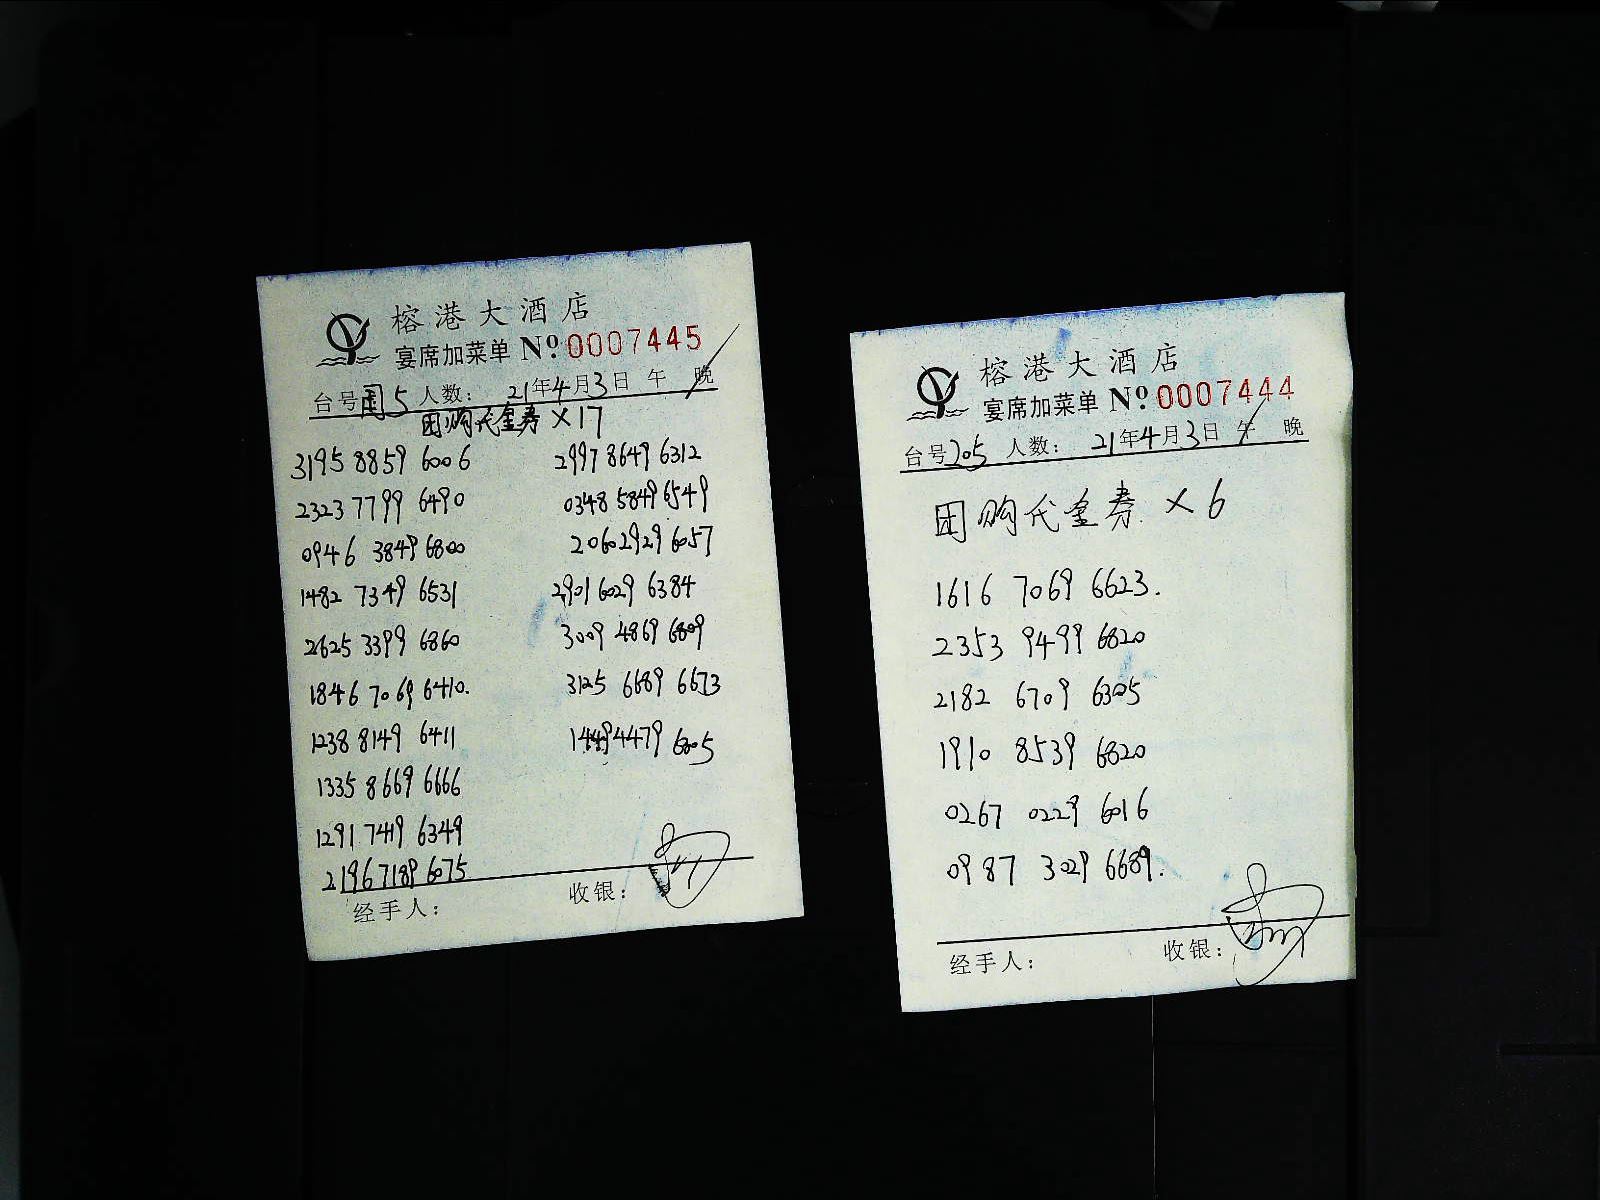 榕港大酒店
宴席加菜单 Nº 0007445
台号 5 人数: 21年4月3日 午 晚
团购代金券 ×17
3195 8859 6006
2323 7799 6490
0946 3849 6800
1482 7349 6531
2625 3399 6860
1846 7069 6410.
1238 8149 6411
1335 8669 6666
1291 7419 6349
2196 7189 6075
2997 8649 6312
0348 5849 6549
2060 2929 6057
2901 6029 6384
3009 4869 6809
3125 6689 6673
1449 4479 6805
经手人: 收银:
榕港大酒店
宴席加菜单 Nº 0007444
台号 205 人数: 21年4月3日 午 晚
团购代金券 × 6
1616 7069 6623.
2353 9499 6820
2182 6709 6305
1910 8539 6820
0267 0229 6016
0987 3029 6689.
经手人: 收银: